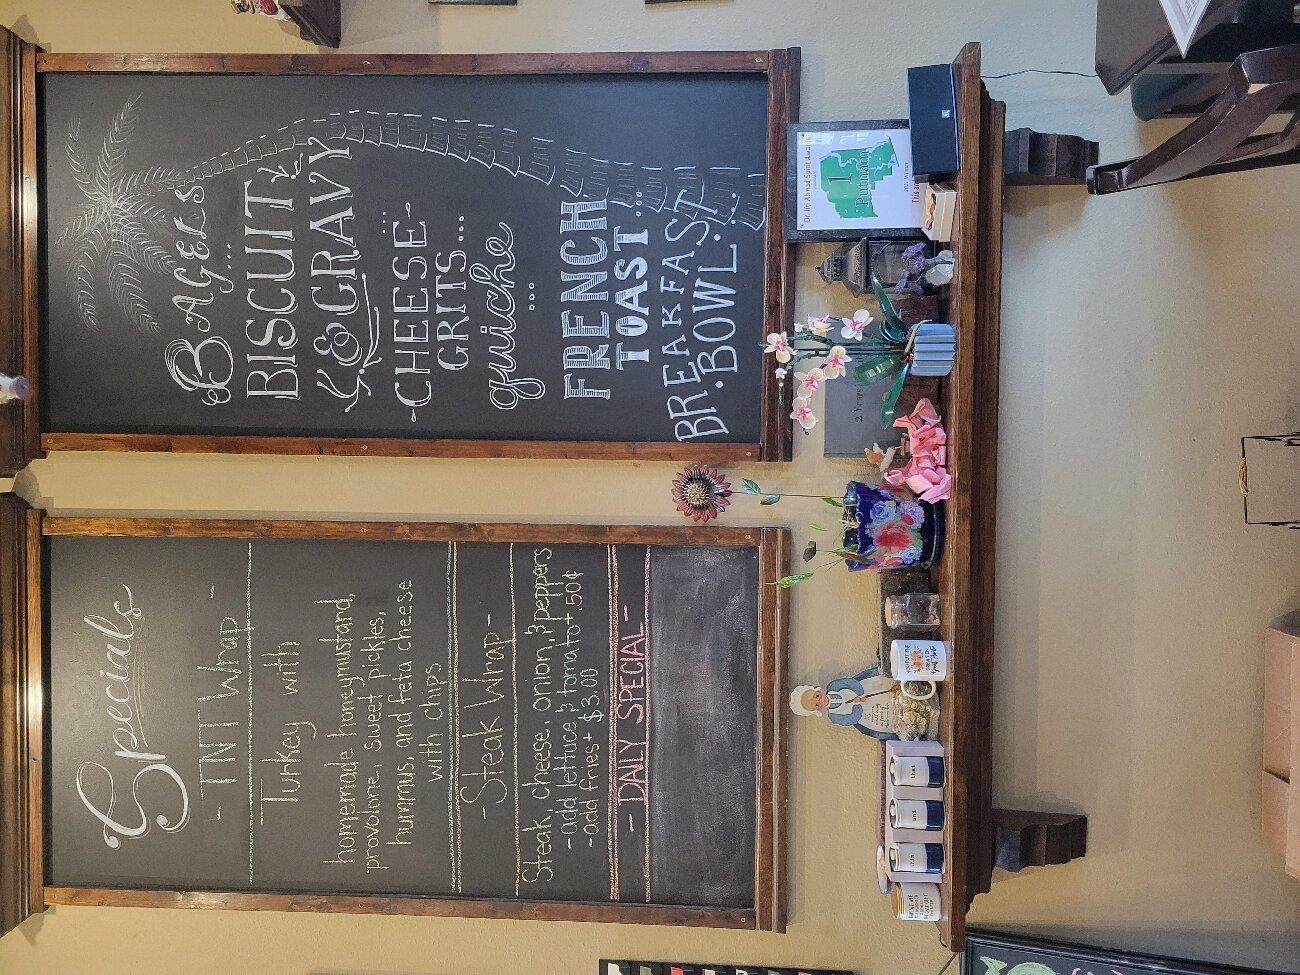 Specials
- TNT Wrap -
Turkey with
homemade honeymustard,
provolone, sweet pickles,
hummus, and feta cheese
with chips
- Steak Wrap -
Steak, cheese, onion, & peppers
- add lettuce & tomato + .50¢
- add fries + $3.00
- DAILY SPECIAL -
BAGELS
...
BISCUIT
& GRAVY
...
- CHEESE -
GRITS...
quiche
...
FRENCH
TOAST...
BREAKFAST
. BOWL. ...
Dr. Ifti Ahmad Spirit Award
1
Putnam
2 Years
this
and
that